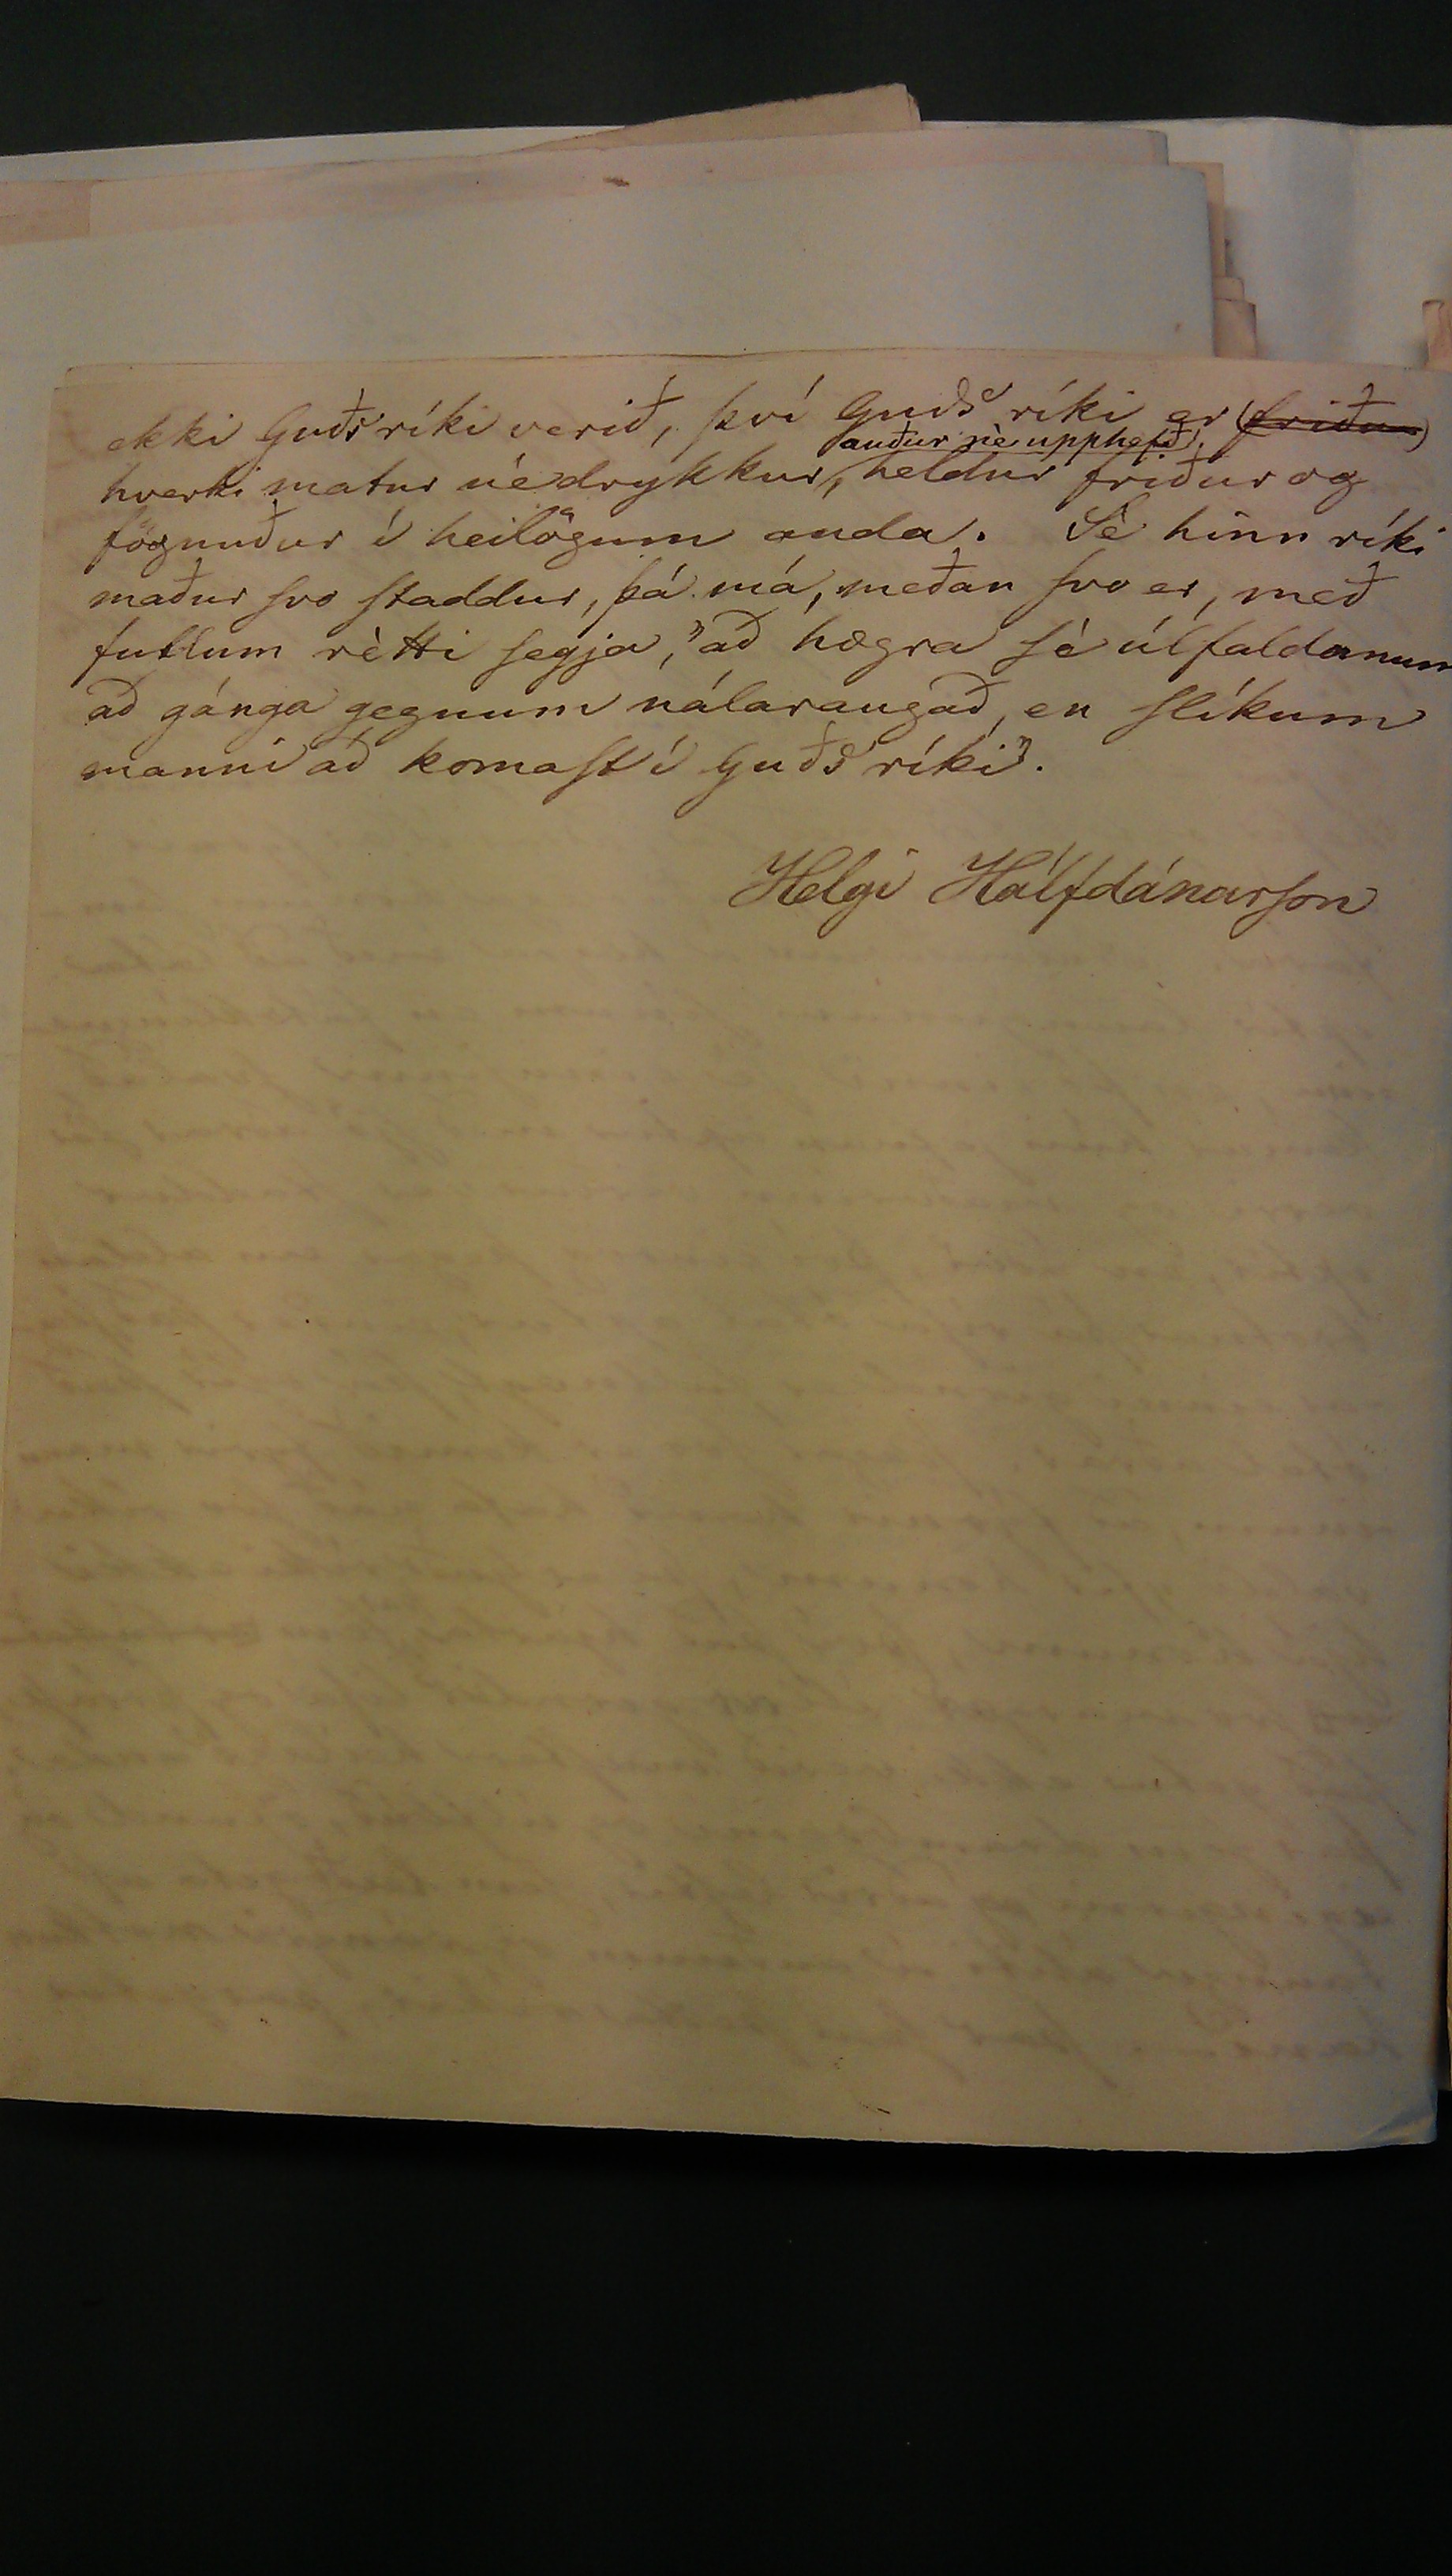 ekki Guðs ríki verið, því Guðs ríki er (friður)
auður nè upphefð,
hverki matur né drykkur, heldur friður og
fögnuður í heilögum anda. Sè hinn ríki
maður svo staddur, þá má, meðan svo er, með
fullum rètti segja, "að hægra sè úlfaldanum
að gánga gegnum nálaraugað, en slíkum
manni að komast í Guðs ríki".
Helgi Hálfdánarson